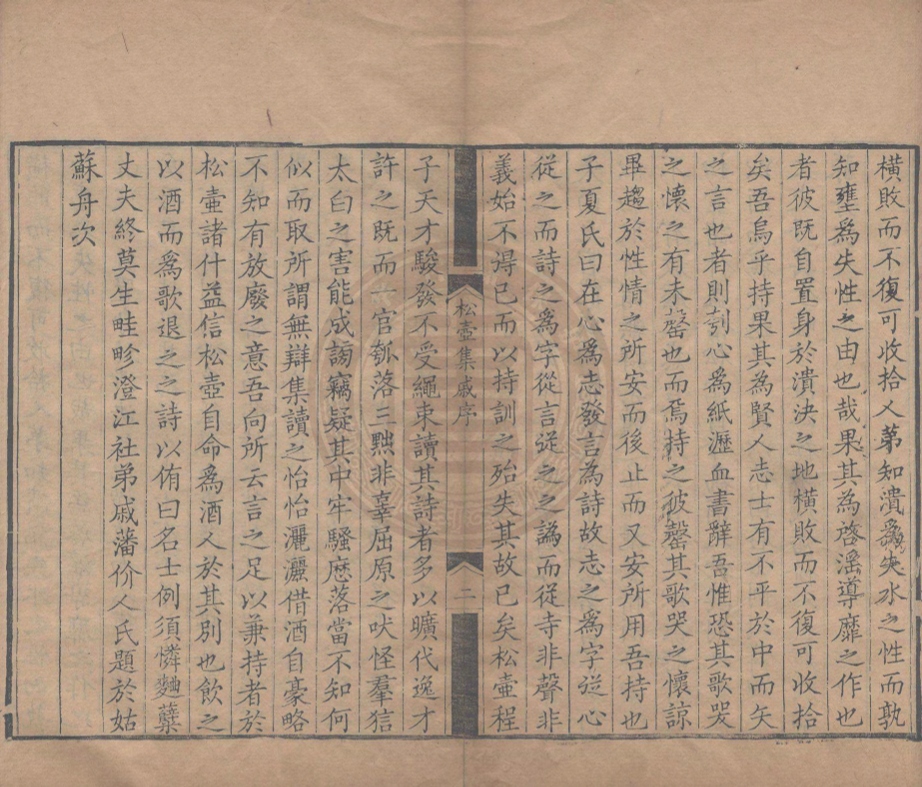 橫敗而不復可收拾人苐知潰爲失水之性而孰
知壅爲失性之由也哉果其為啓滛導靡之作也
者彼既自置身於潰決之地橫敗而不復可收拾
矣吾烏乎持果其為賢人志士有不平於中而矢
之言也者則刳心為紙瀝血書辭吾惟恐其歌哭
之懷之有未罄也而焉持之彼罄其歌哭之懷諒
畢趨於性情之所安而後止而又安所用吾持也
子夏氏曰在心為志發言為詩故志之為字從心
從之而詩之為字從言從之之譌而從寺非聲非
義始不得已而以持訓之殆失其故已矣松壷程
松壷集戚序
二
子天才駿發不受繩束讀其詩者多以曠代逸才
許之既而一官瓠落三黜非辜屈原之吠怪羣猜
太白之害能成謗竊疑其中牢騷歷落當不知何
似而取所謂無辯集讀之怡怡灑灑借酒自豪略
不知有放廢之意吾向所云言之足以兼持者於
松壷諸什益信松壷自命爲酒人於其別也飲之
以酒而爲歌退之之詩以侑曰名士例須憐麯蘖
丈夫終莫生畦畛澄江社弟戚藩价人氏題於姑
蘇舟次